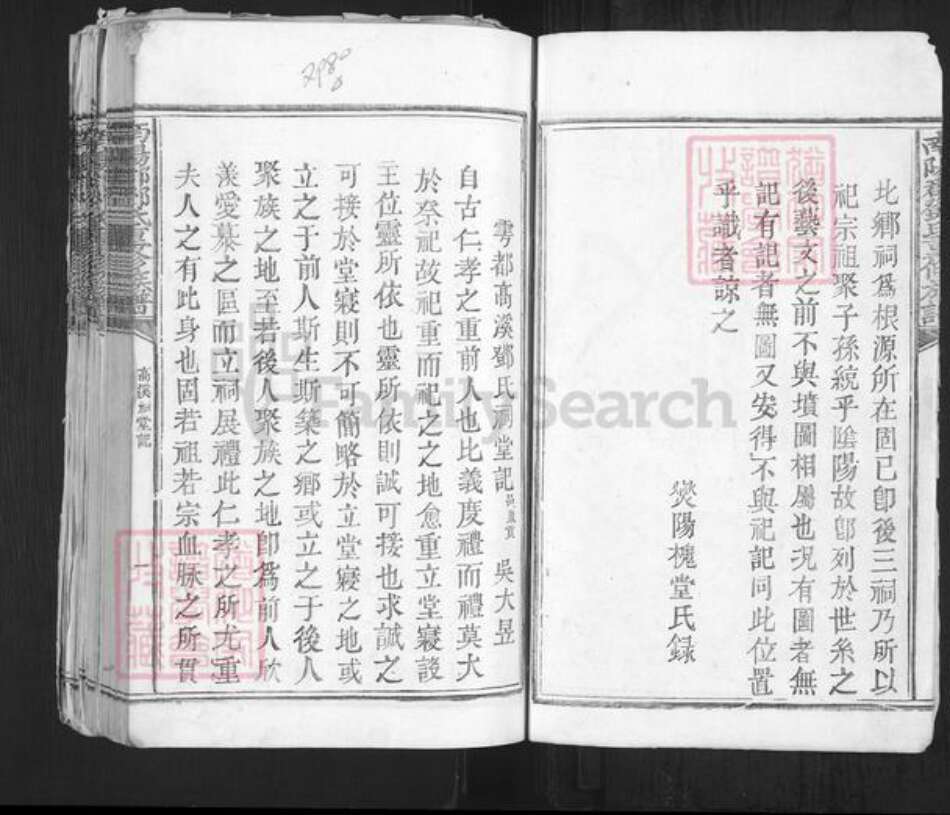 此鄉祠爲根源所在固已卽後三祠乃所以
祀宗祖聚子孫統乎陰陽故卽列於世系之
後藝文之前不與墳圖相屬也况有圖者無
記有記者無圖又安得不與祀記同此位置
乎識者諒之
滎陽槐堂氏録
雩都高溪鄧氏祠堂記 吳大昱
自古仁孝之重前人也比義度禮而禮莫大
於祭祀故祀重而祀之之地愈重立堂寢設
主位靈所依也靈所依則誠可接也求誠之
可接於堂寢則不可簡略於立堂寢之地或
立之于前人斯生斯築之鄉或立之于後人
聚族之地至若後人聚族之地卽爲前人欣
羡愛慕之區而立祠展禮此仁孝之所尤重
夫人之有此身也固若祖若宗血脉之所貫
高溪祠堂記
一
FamilySearch